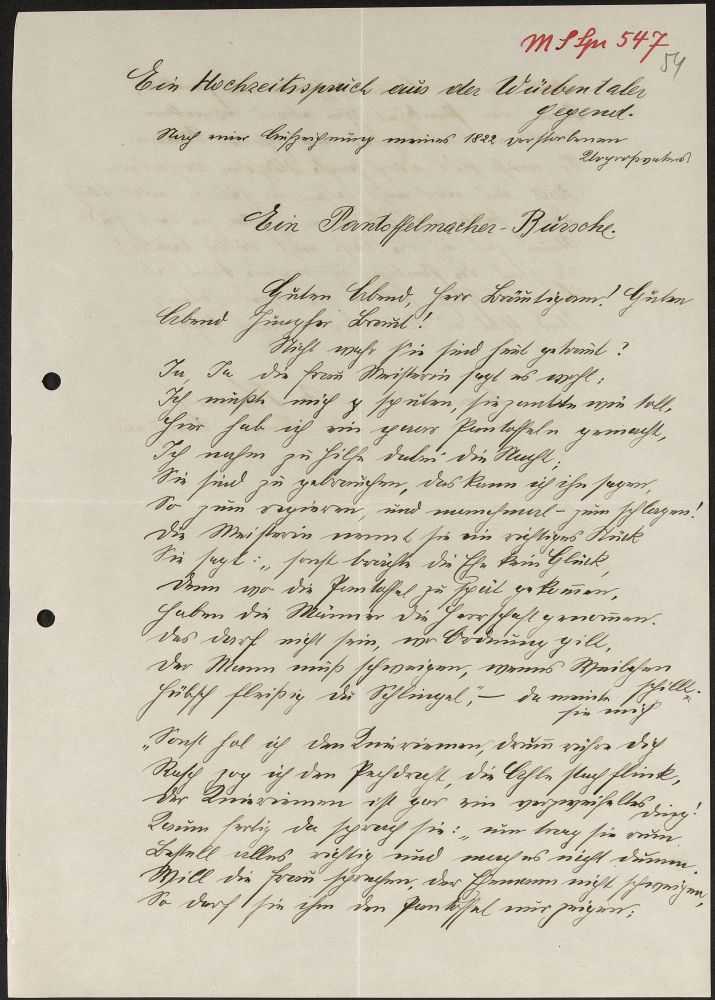 MS Spr 547
54
Ein Hochzeitsspruch aus der Würbentaler
Gegend.
Nach einer Aufzeichnung meines 1822 verstorbenen
Urgroßvaters
Ein Pantoffelmacher-Bursche.
Guten Abend, Herr Bräutigam! Guten
Abend Jungfer Braut!
Nicht wahr Sie sind heut getraut?
Ja, Ja die Frau Meisterin sagt es wohl;
Ich mußte mich sputen, sie zankte wie toll,
Hier hab ich ein paar Pantoffeln gemacht,
Ich nahm zu Hilfe dabei die Nacht;
Sie sind zu gebrauchen, das kann ich ihr sagen,
So zum regieren, und manchmal – zum schlagen!
Die Meisterin nennt sie ein wichtiges Stück
Sie sagt: „sonst brächte die Ehe kein Glück,
Denn wo die Pantoffel zu spät gekommen,
Haben die Männer die Herrschaft genommen.
Das darf nicht sein, wo Ordnung gilt,
Der Mann muß schweigen, wenns Weibchen
schillt.
Hübsch fleißig du Schlingel", – da meinte
sie mich
„Sonst hol ich den Knieriemen, drum rühre dich
Rasch zog ich den Pechdraht, die Ahle stach flink,
Der Knieriemen ist gar ein verzweifeltes
Ding!
Kaum fertig da sprach sie: „nun trag sie
Bestell alles richtig und mach es nicht dumm.
Will die Frau sprechen, der Ehemann nicht schweigen,
So darf sie ihm den Pantoffel nur zeigen;